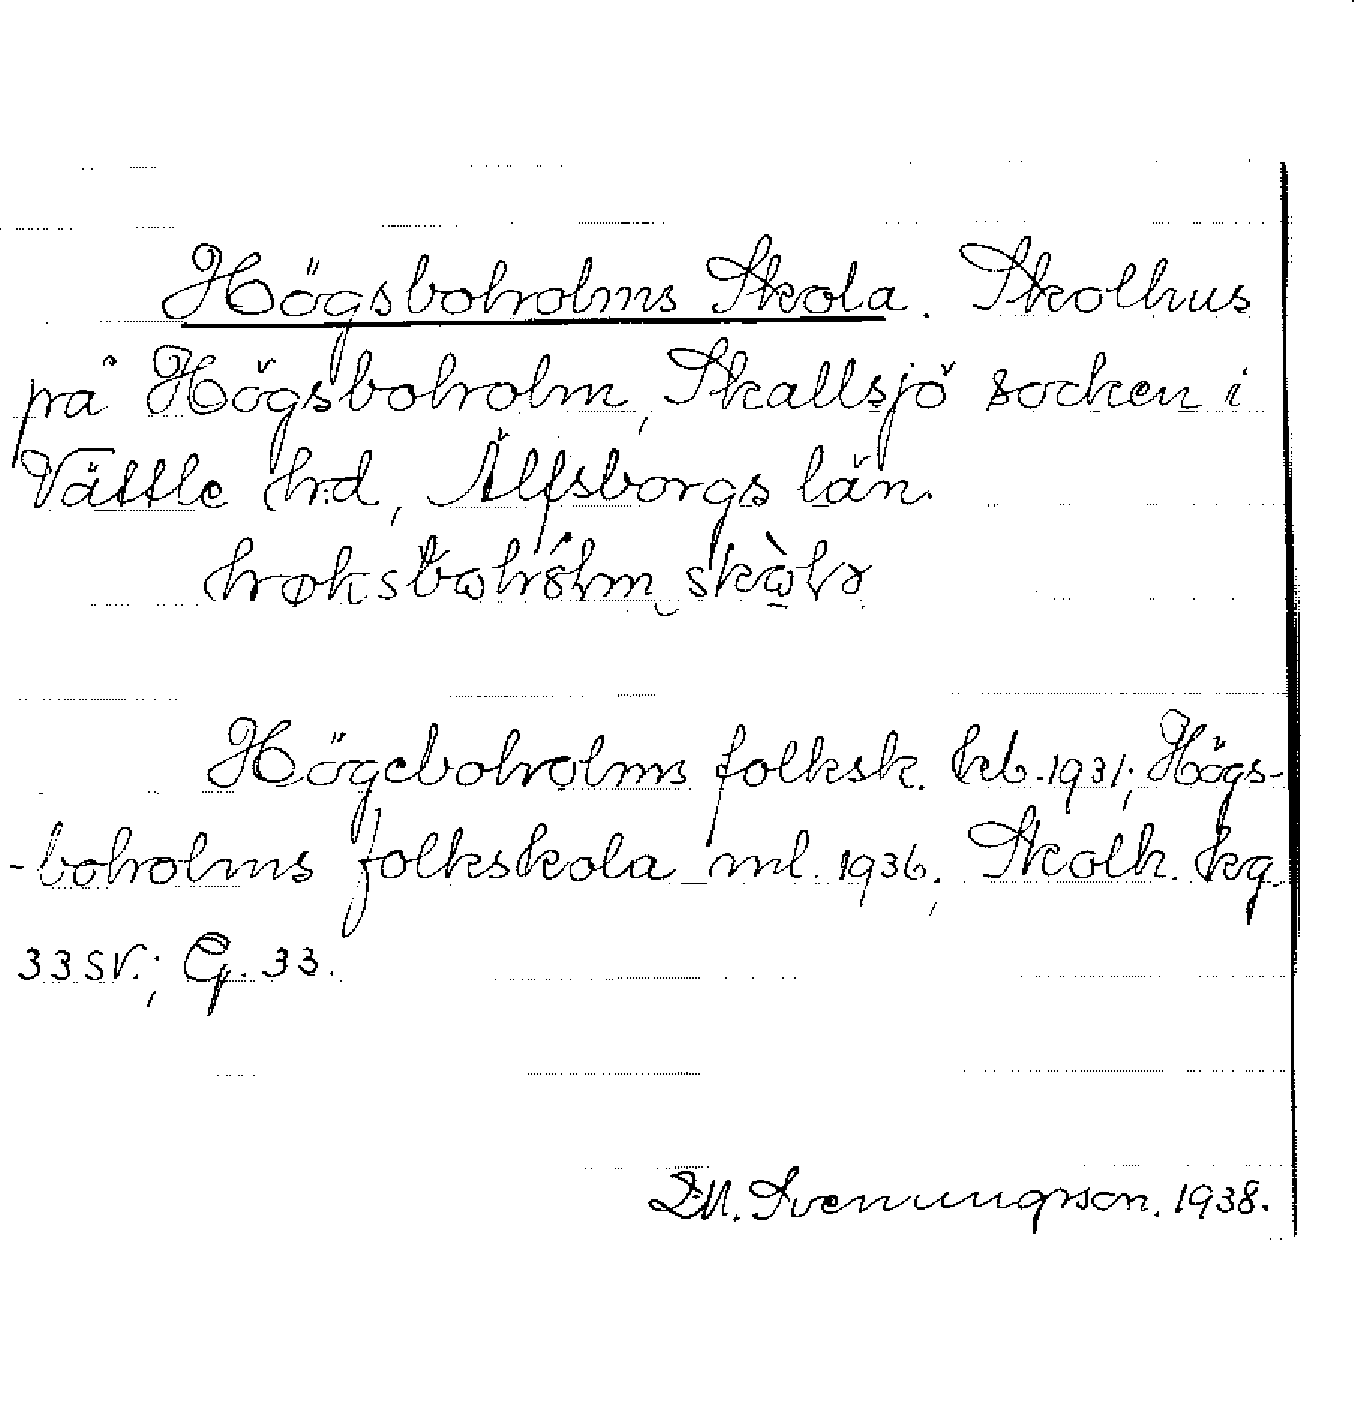 Högsboholms Skola. Skolhus
på Högsboholm, Skallsjö socken i
Vättle hrd, Älfsborgs län.
Högsboholms folksk. kb. 1931; Högs-
-boholms folkskola ml. 1936; Skolh. kg.
33 SV.; Cp. 33.
D.M. Svenungsson. 1938.